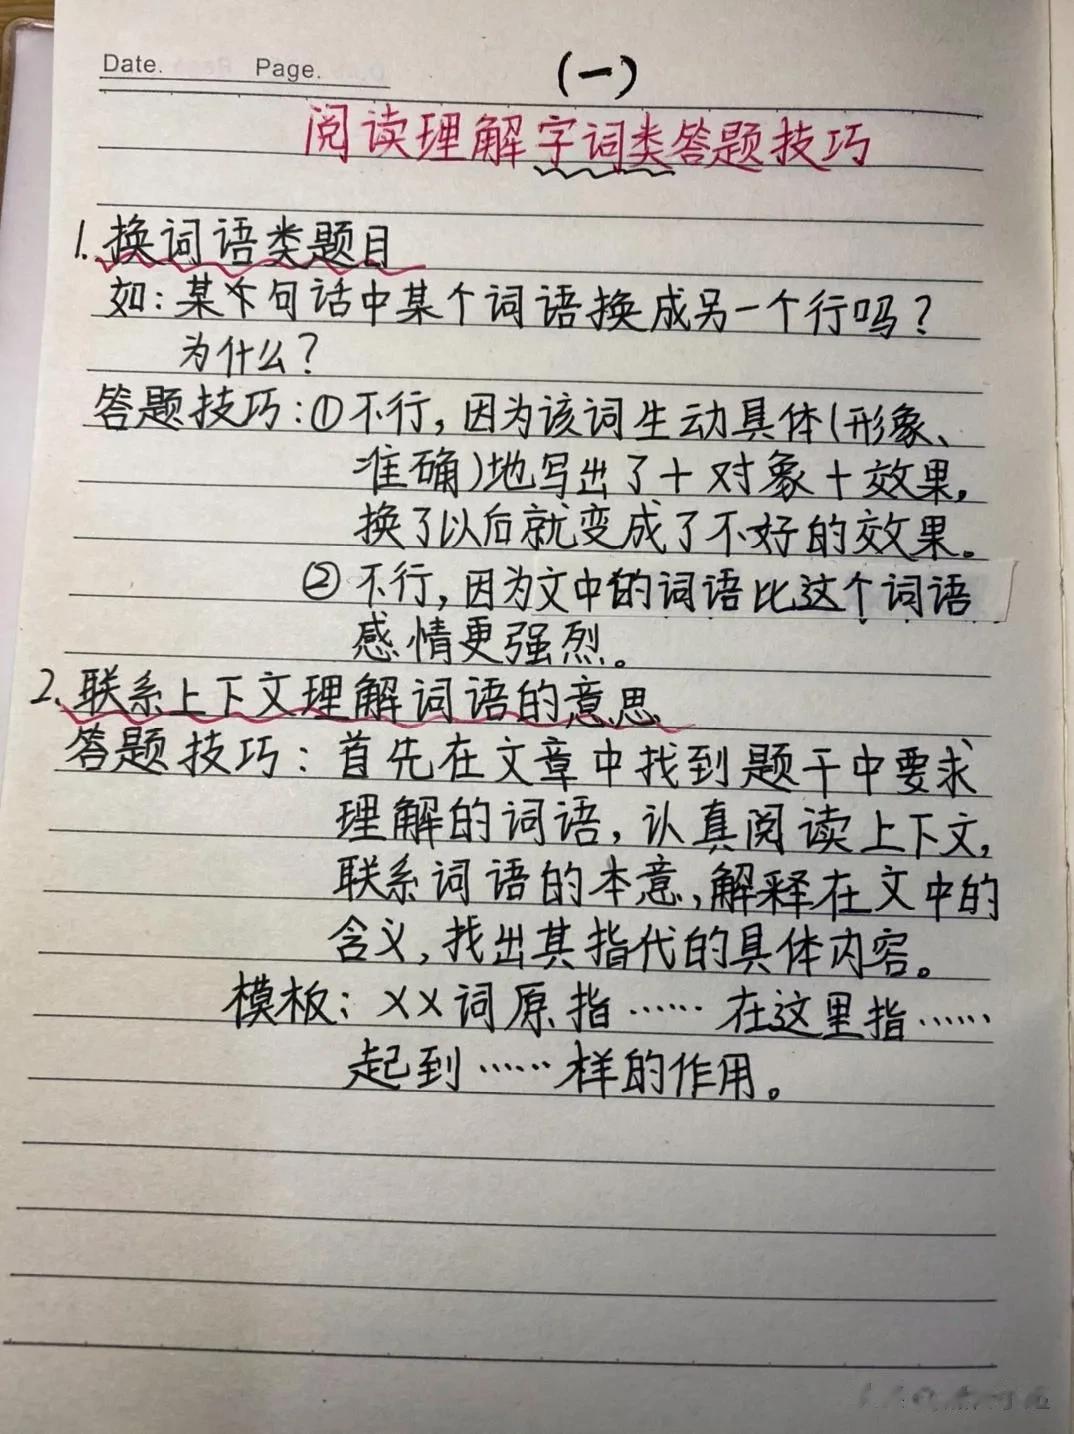 Date. Page.
(一)
阅读理解字词类答题技巧
1. 换词语类题目
如:某个句话中某个词语换成另一个行吗?
为什么?
答题技巧:①不行,因为该词生动具体(形象、
准确)地写出了+对象+效果,
换了以后就变成了不好的效果。
②不行,因为文中的词语比这个词语
感情更强烈。
2. 联系上下文理解词语的意思
答题技巧:首先在文章中找到题干中要求
理解的词语,认真阅读上下文,
联系词语的本意,解释在文中的
含义,找出其指代的具体内容。
模板:××词原指……在这里指……
起到……样的作用。